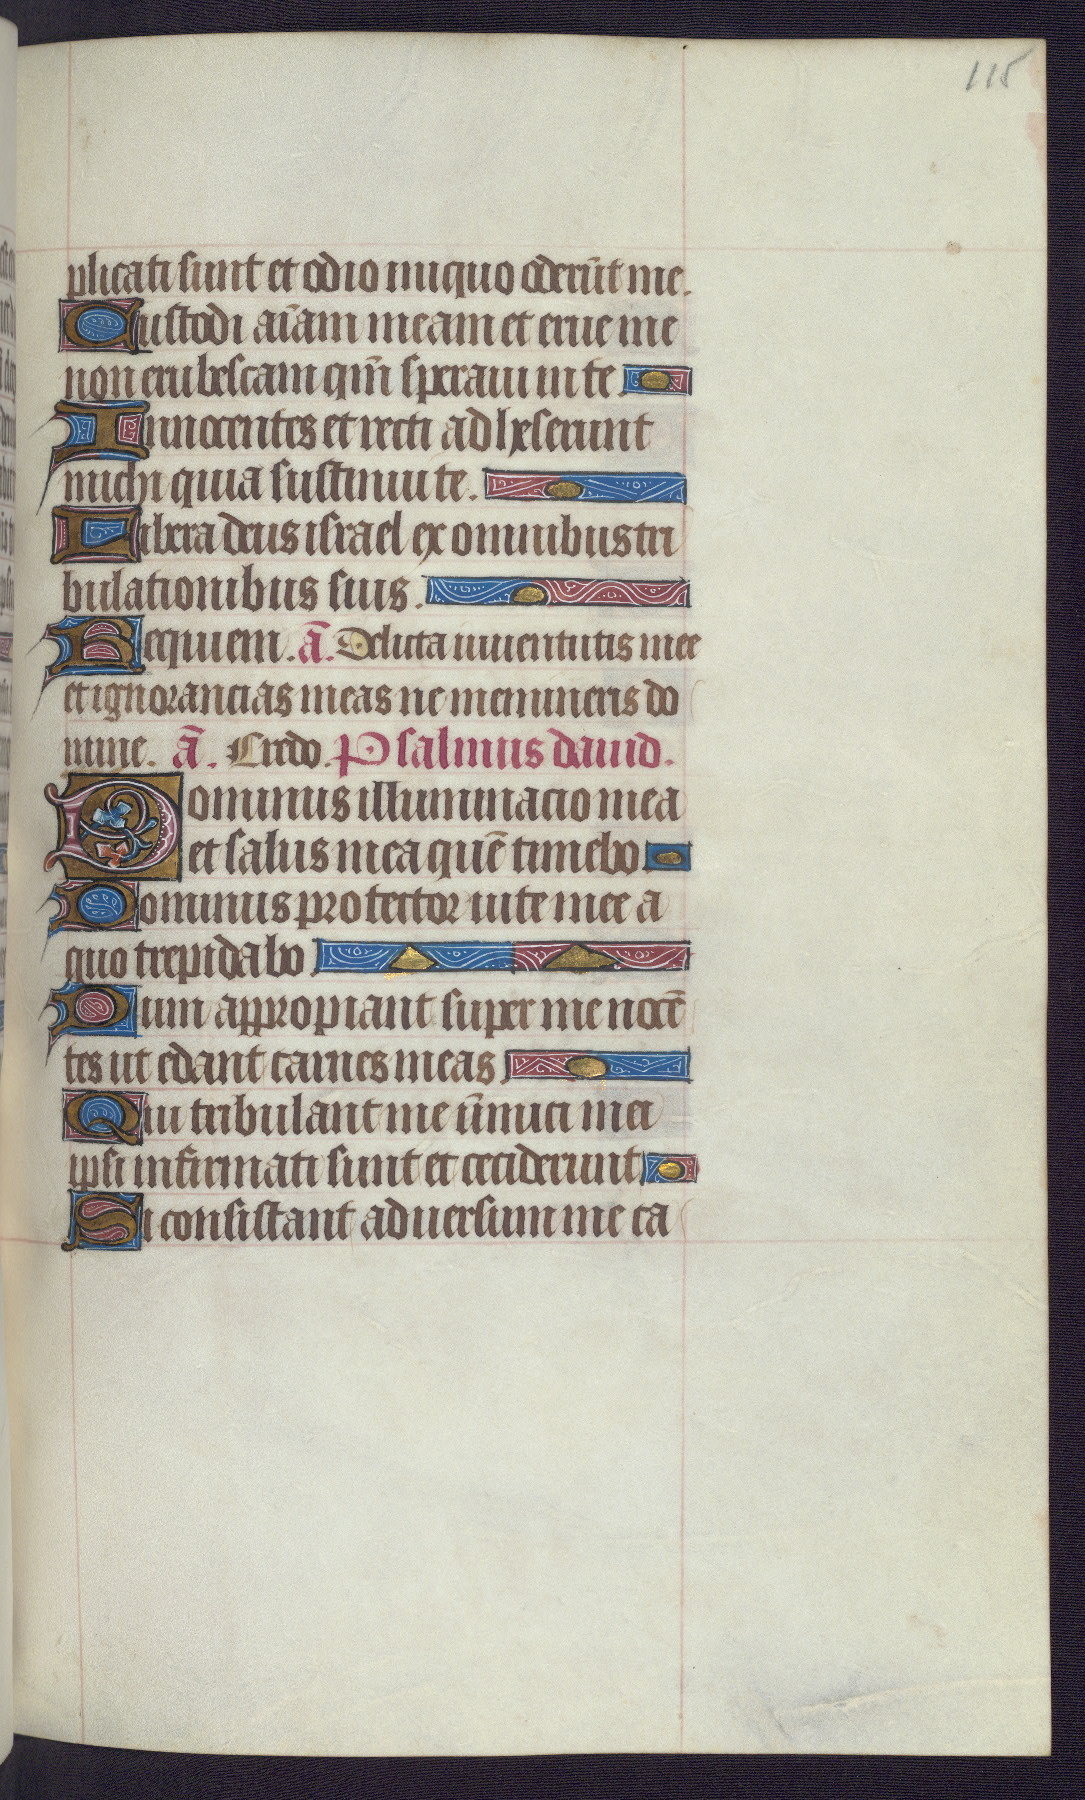 115
plicati sunt et odio iniquo oderūt me.
Custodi aīam meam et erue me
non erubescam qm̄ speraui in te
Innocentes et recti adheserunt
michi quia sustinui te.
Libera deus israel ex omnibus tri
bulationibus suis.
Requiem. ā. Delicta iuuentutis mee
et ignorancias meas ne memineris do
mine. ā. Credo. Psalmus dauid.
Dominus illuminacio mea
et salus mea quē timebo
Dominus protector uite mee a
quo trepidabo
Dum appropiant super me nocē
tes ut edant carnes meas
Qui tribulant me īimici mei
ipsi infirmati sunt et ceciderunt
Si consistant aduersum me ca